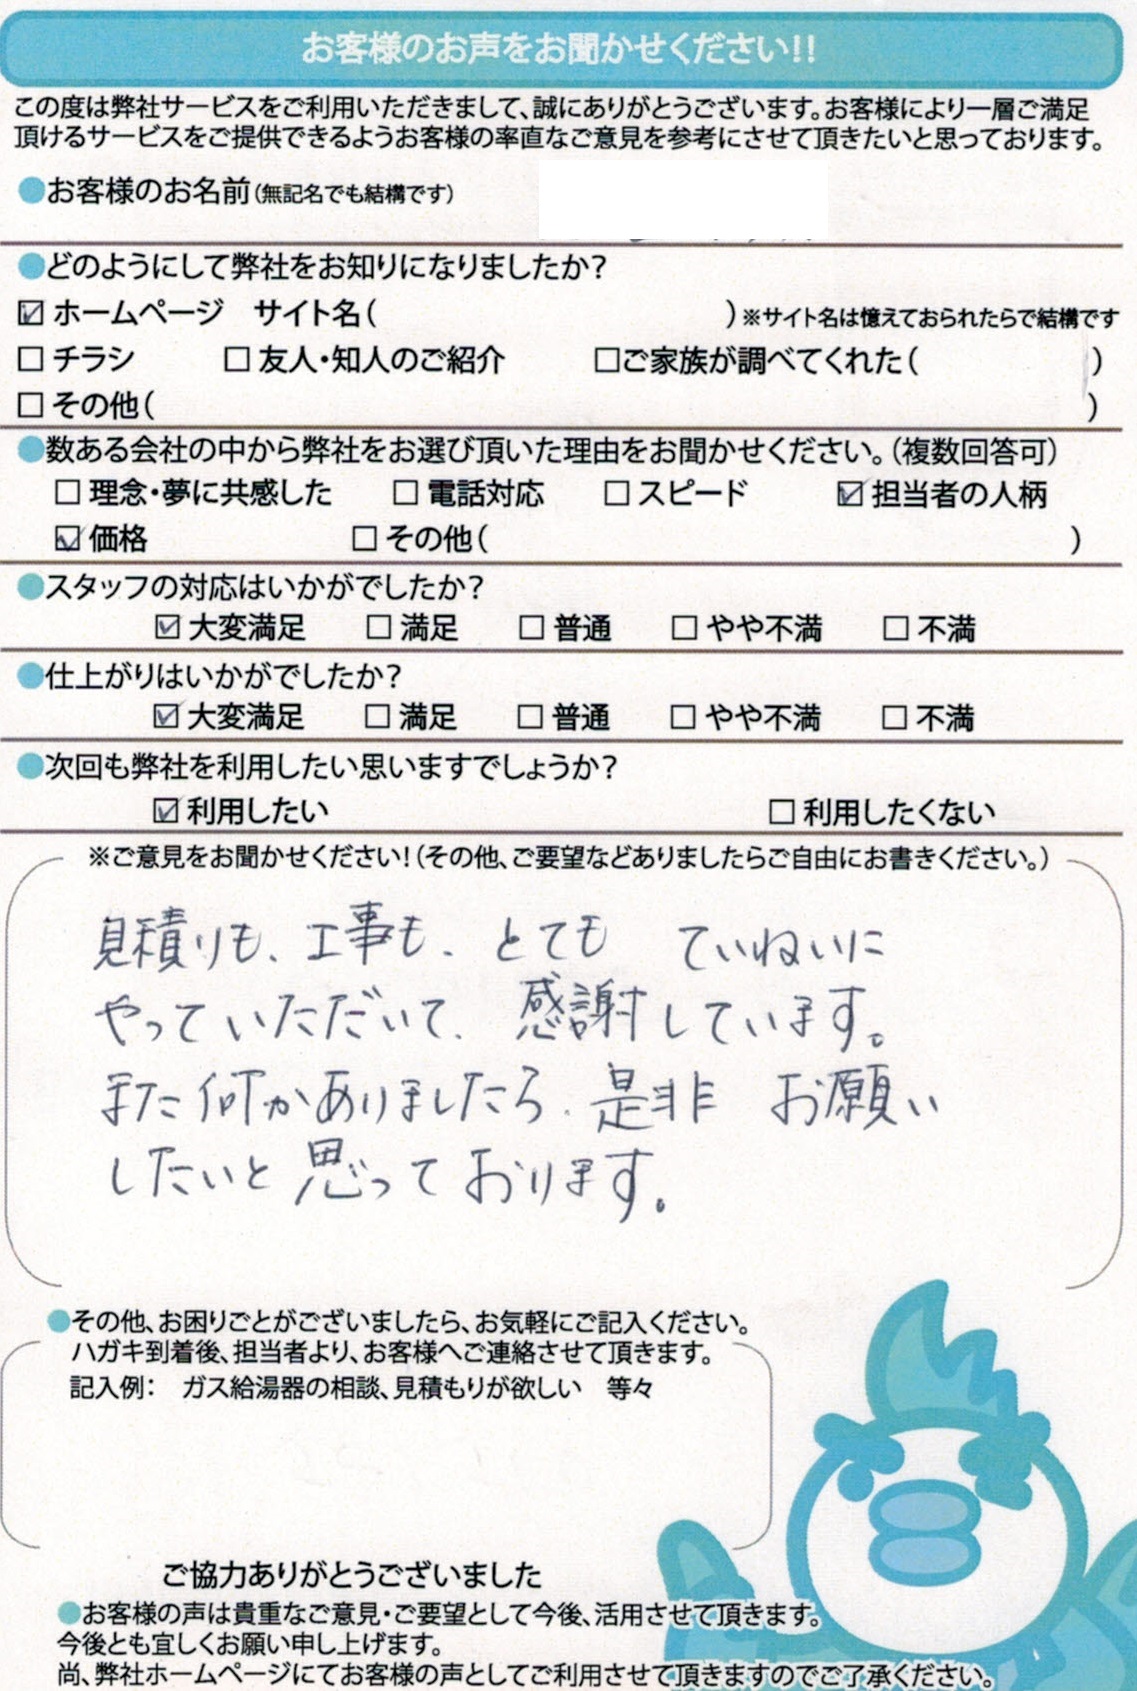 お客様のお声をお聞かせください!!
この度は弊社サービスをご利用いただきまして、誠にありがとうございます。お客様により一層ご満足
頂けるサービスをご提供できるようお客様の率直なご意見を参考にさせて頂きたいと思っております。
●お客様のお名前(無記名でも結構です)
●どのようにして弊社をお知りになりましたか?
☑ ホームページ サイト名( )※サイト名は憶えておられたらで結構です
□ チラシ □ 友人・知人のご紹介 □ご家族が調べてくれた( )
□ その他( )
●数ある会社の中から弊社をお選び頂いた理由をお聞かせください。(複数回答可)
□ 理念・夢に共感した □ 電話対応 □ スピード ☑ 担当者の人柄
☑ 価格 □ その他( )
●スタッフの対応はいかがでしたか?
☑ 大変満足 □ 満足 □ 普通 □ やや不満 □ 不満
●仕上がりはいかがでしたか?
☑ 大変満足 □ 満足 □ 普通 □ やや不満 □ 不満
●次回も弊社を利用したい思いますでしょうか?
☑ 利用したい □ 利用したくない
※ご意見をお聞かせください!(その他、ご要望などありましたらご自由にお書きください。)
見積りも、工事も、とても ていねいに
やっていただいて、感謝しています。
また何かありましたら、是非 お願い
したいと思っております。
●その他、お困りごとがございましたら、お気軽にご記入ください。
ハガキ到着後、担当者より、お客様へご連絡させて頂きます。
記入例: ガス給湯器の相談、見積もりが欲しい 等々
ご協力ありがとうございました
●お客様の声は貴重なご意見・ご要望として今後、活用させて頂きます。
今後とも宜しくお願い申し上げます。
尚、弊社ホームページにてお客様の声としてご利用させて頂きますのでご了承ください。